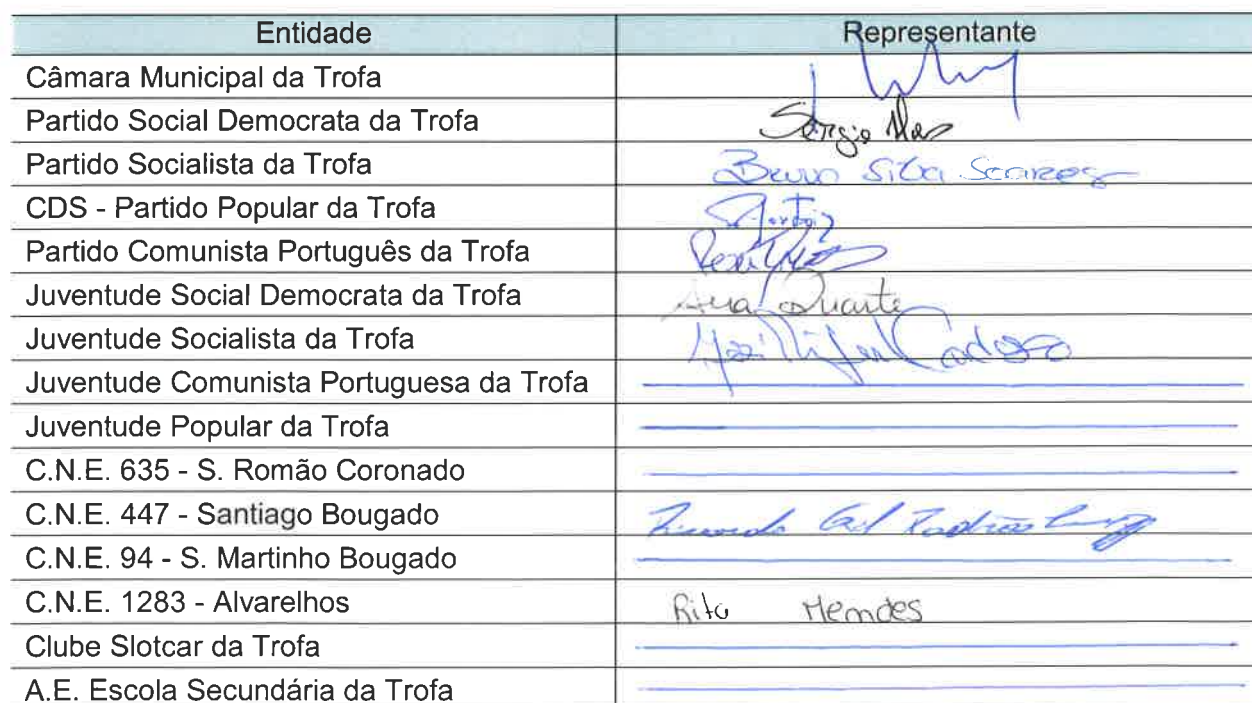 Entidade Representante
Câmara Municipal da Trofa
Partido Social Democrata da Trofa Sérgio
Partido Socialista da Trofa Bruno Silva Soares
CDS - Partido Popular da Trofa
Partido Comunista Português da Trofa
Juventude Social Democrata da Trofa Ana Duarte
Juventude Socialista da Trofa Cardoso
Juventude Comunista Portuguesa da Trofa
Juventude Popular da Trofa
C.N.E. 635 - S. Romão Coronado
C.N.E. 447 - Santiago Bougado
C.N.E. 94 - S. Martinho Bougado
C.N.E. 1283 - Alvarelhos Rita Mendes
Clube Slotcar da Trofa
A.E. Escola Secundária da Trofa